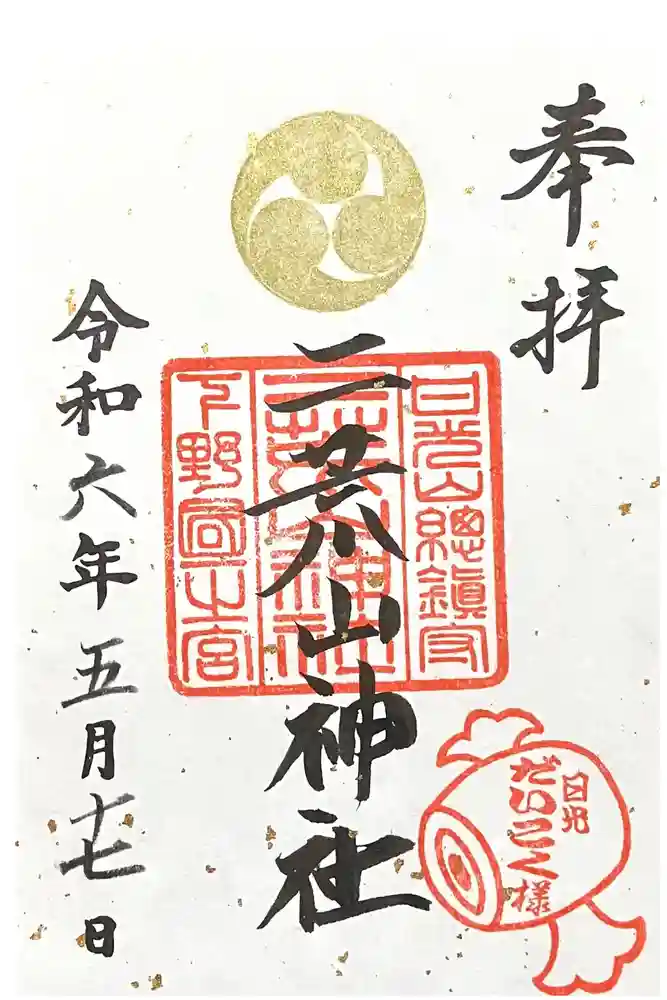 奉拝
日光山總鎮守
二荒山神社
下野国一之宮
二荒山神社
日光
だいこく様
令和六年五月十七日